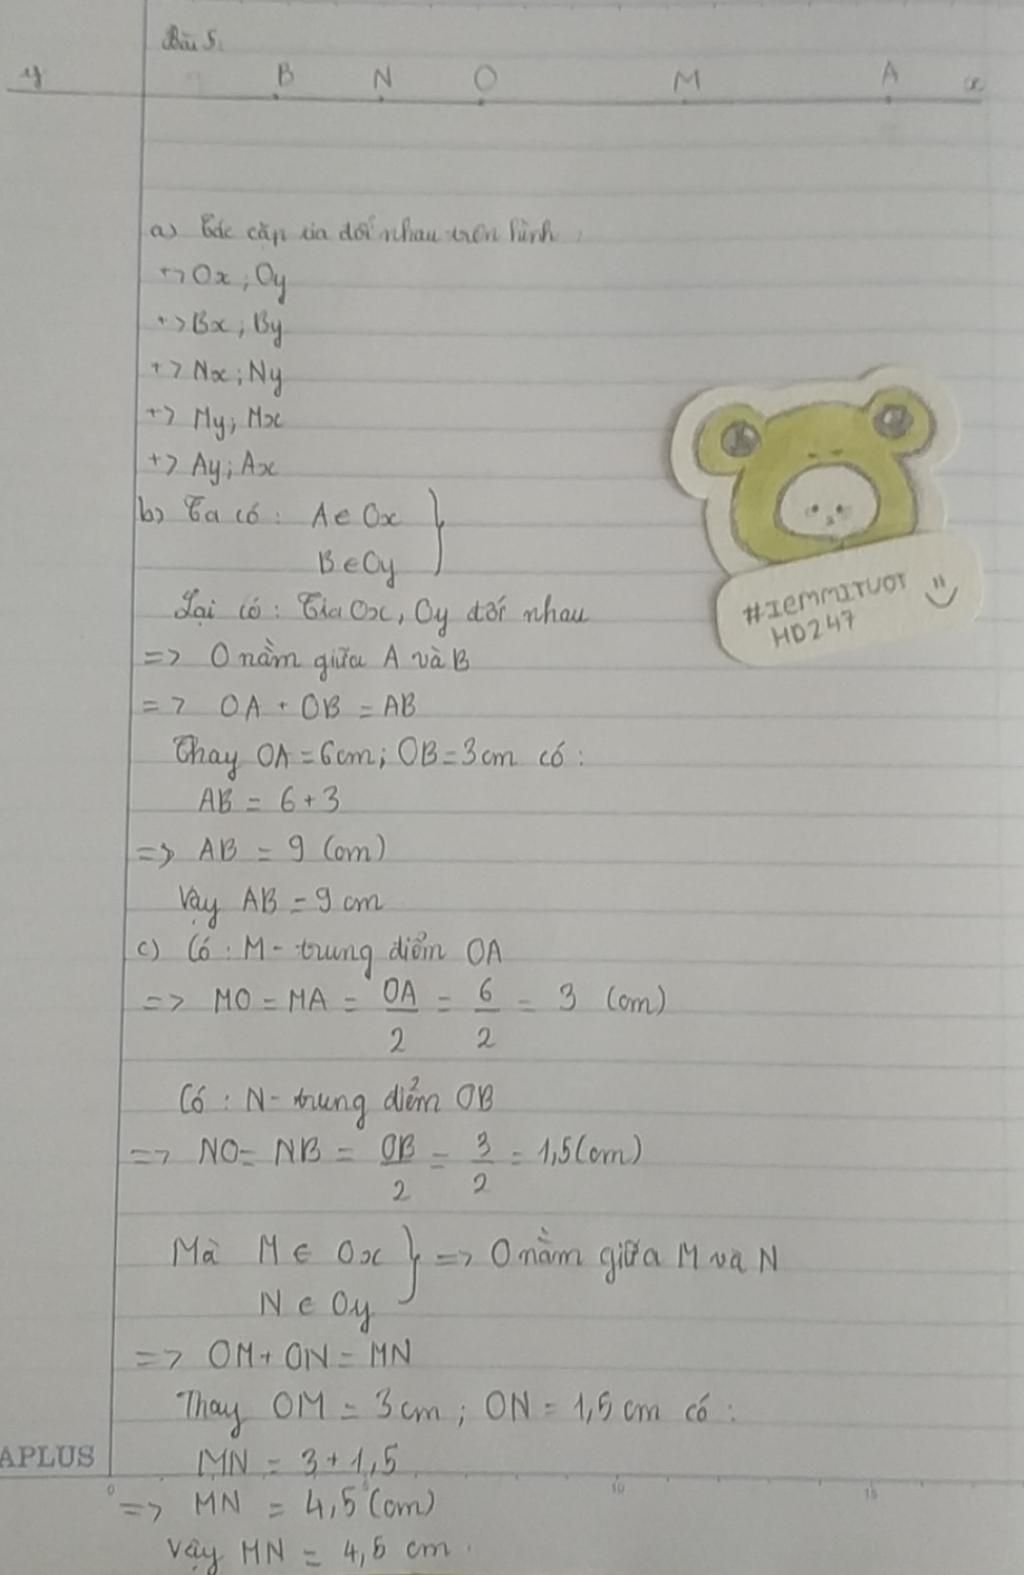 Bài 5.
y B N O M A x
a) Các cặp tia đối nhau trên hình :
+> Ox ; Oy
+> Bx ; By
+> Nx ; Ny
+> My ; Mx
+> Ay ; Ax
b) Ta có : A ∈ Ox }
B ∈ Oy
Lại có : Tia Ox, Oy đối nhau
#IEMMITUOT
HD247
=> O nằm giữa A và B
=> OA + OB = AB
Thay OA = 6cm ; OB = 3cm có :
AB = 6 + 3
=> AB = 9 (cm)
Vậy AB = 9 cm
c) Có : M - trung điểm OA
=> MO = MA = OA/2 = 6/2 = 3 (cm)
Có : N - trung điểm OB
=> NO = NB = OB/2 = 3/2 = 1,5 (cm)
Mà M ∈ Ox } => O nằm giữa M và N
N ∈ Oy
=> OM + ON = MN
Thay OM = 3 cm ; ON = 1,5 cm có :
APLUS MN = 3 + 1,5
0 10 15
=> MN = 4,5 (cm)
Vậy MN = 4,5 cm.